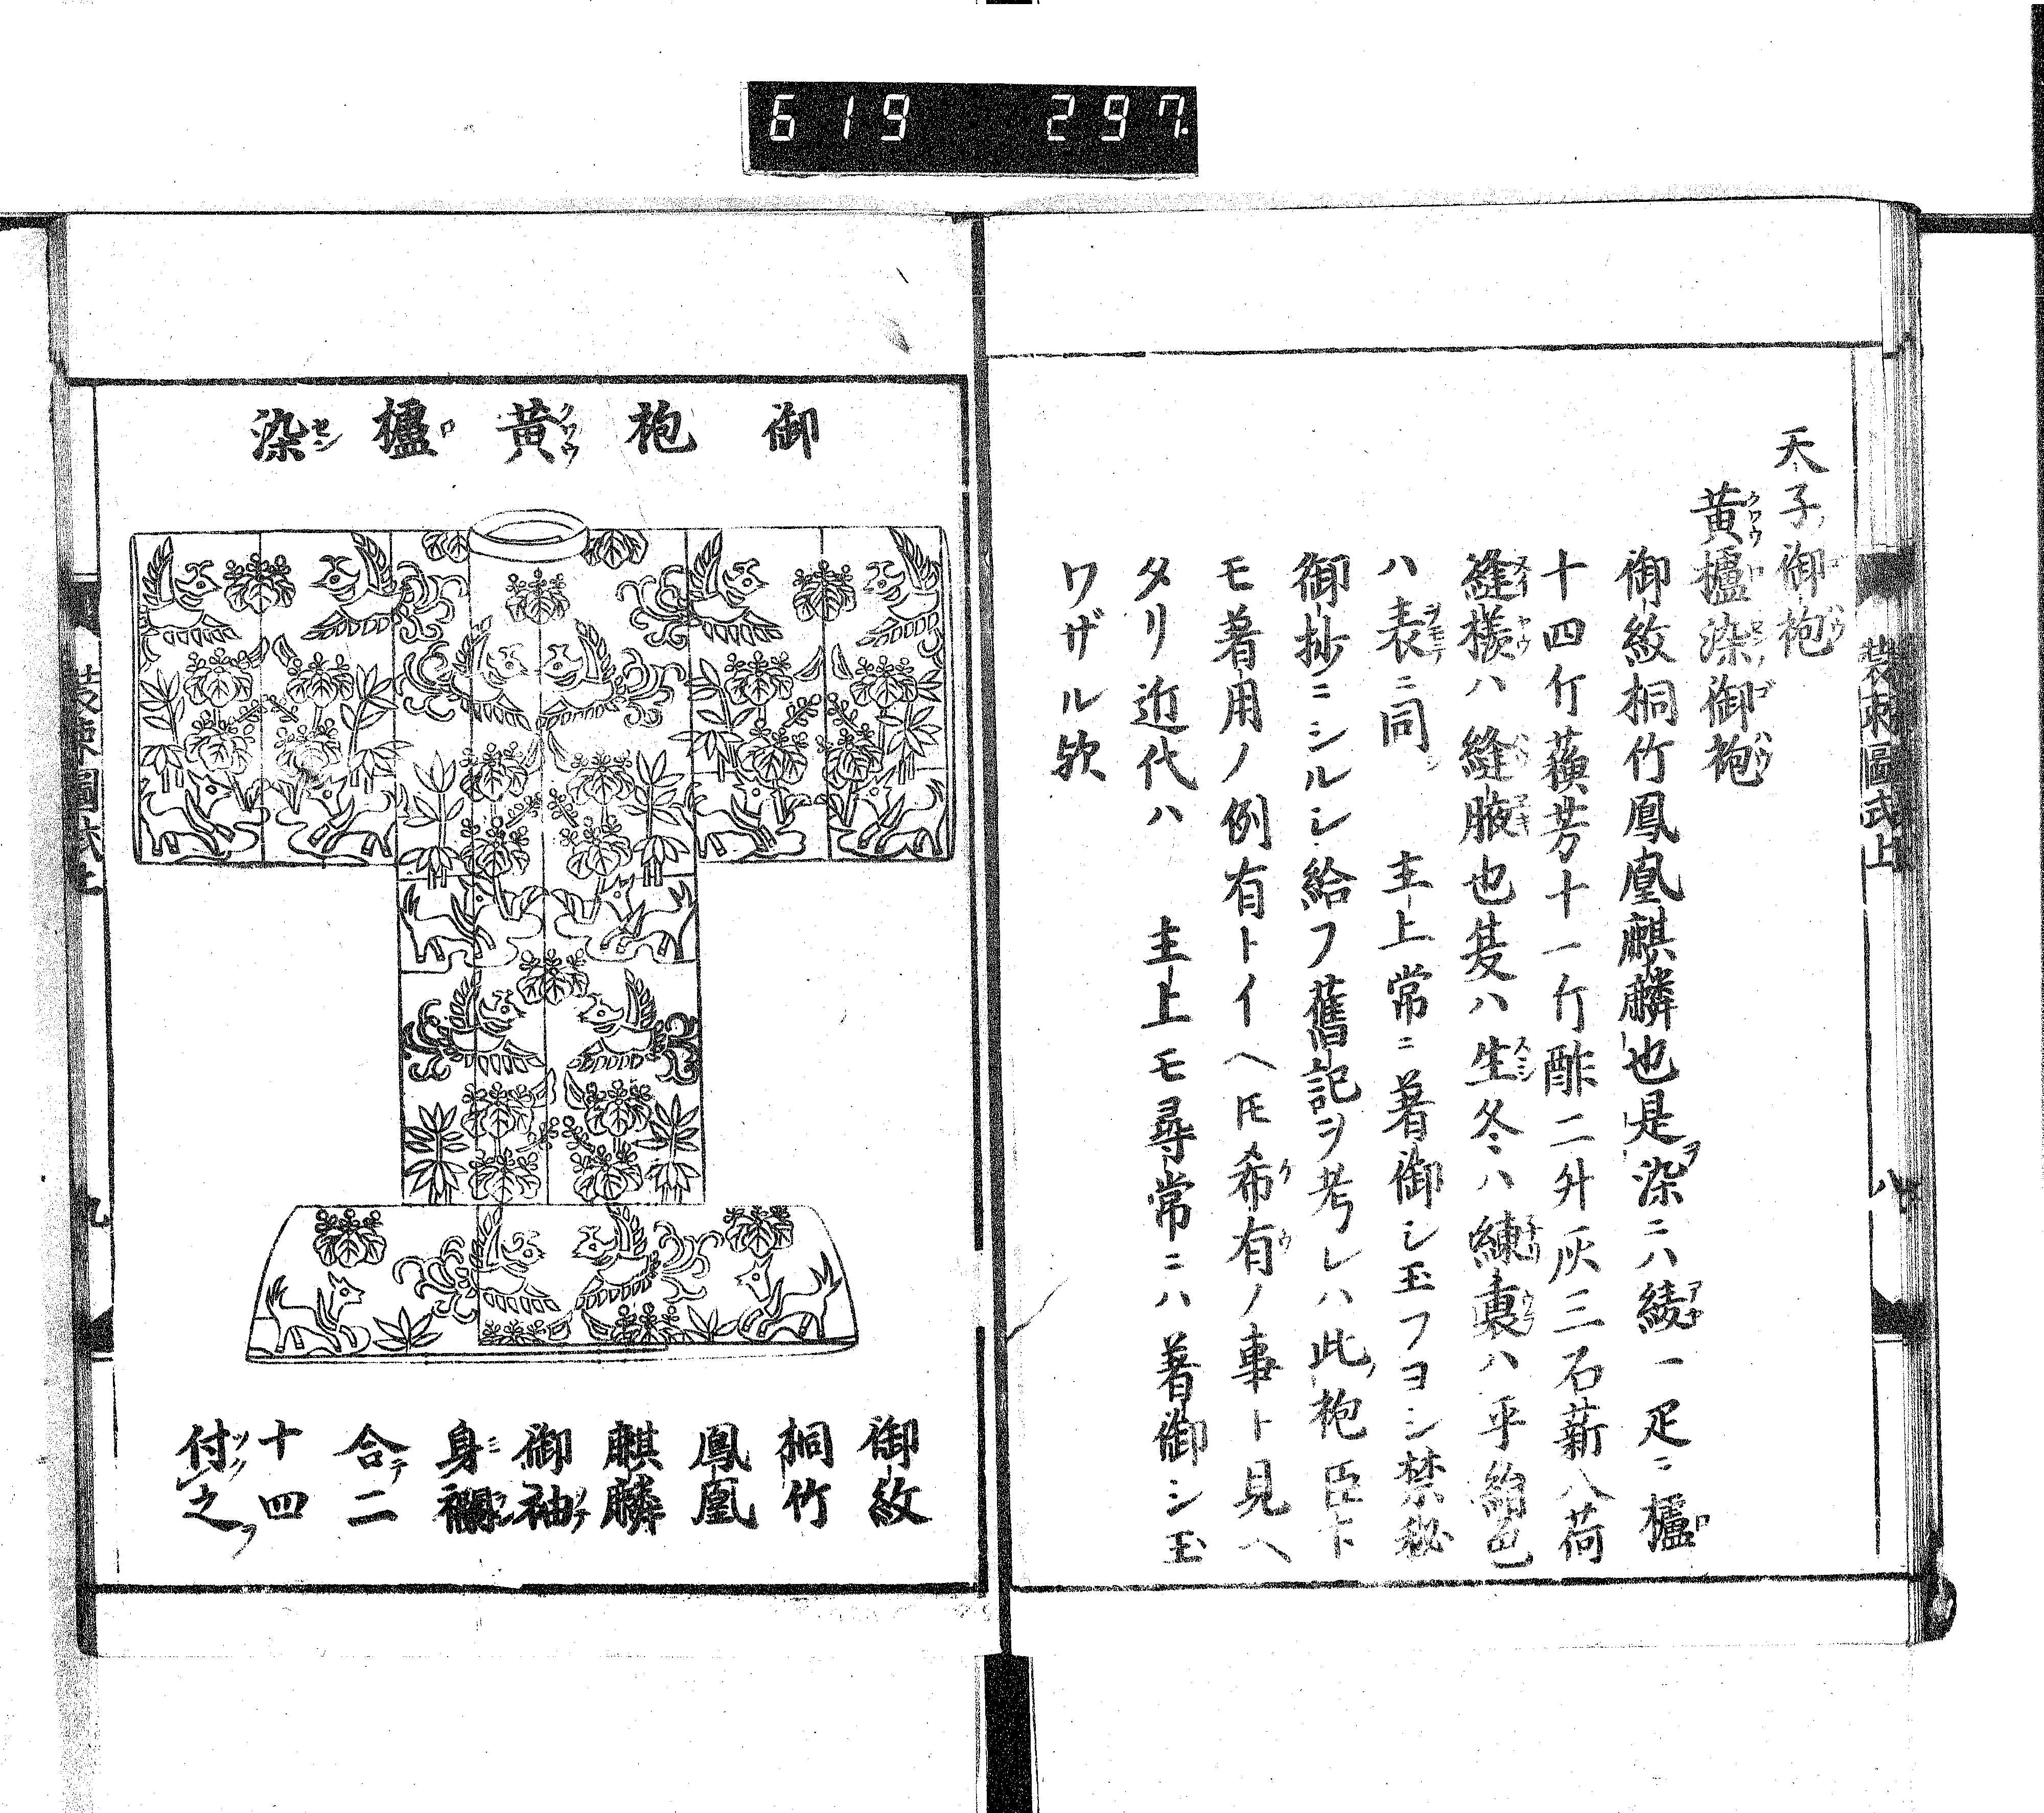 619 297
天子御袍
黃櫨染御袍
御紋桐竹鳳凰麒麟也是ヲ染ニハ綾一疋ニ櫨
十四斤蘓芳十一斤酢二升灰三石薪八荷
縫様ハ縫腋也夏ハ生冬ハ練裏ハ平絹色
ハ表ニ同シ 主上常ニ著御シ玉フヨシ禁秘
御抄ニシルシ給フ舊記ヲ考レハ此袍臣下
モ著用ノ例有トイヘ𪜈希有ノ事ト見ヘ
タリ近代ハ 主上モ尋常ニハ著御シ玉
ワザル欤
裝束圖式上
八
御袍黃櫨染
御紋
桐竹
鳳凰
麒麟
御袖
身襴
合二
十四
付之
九